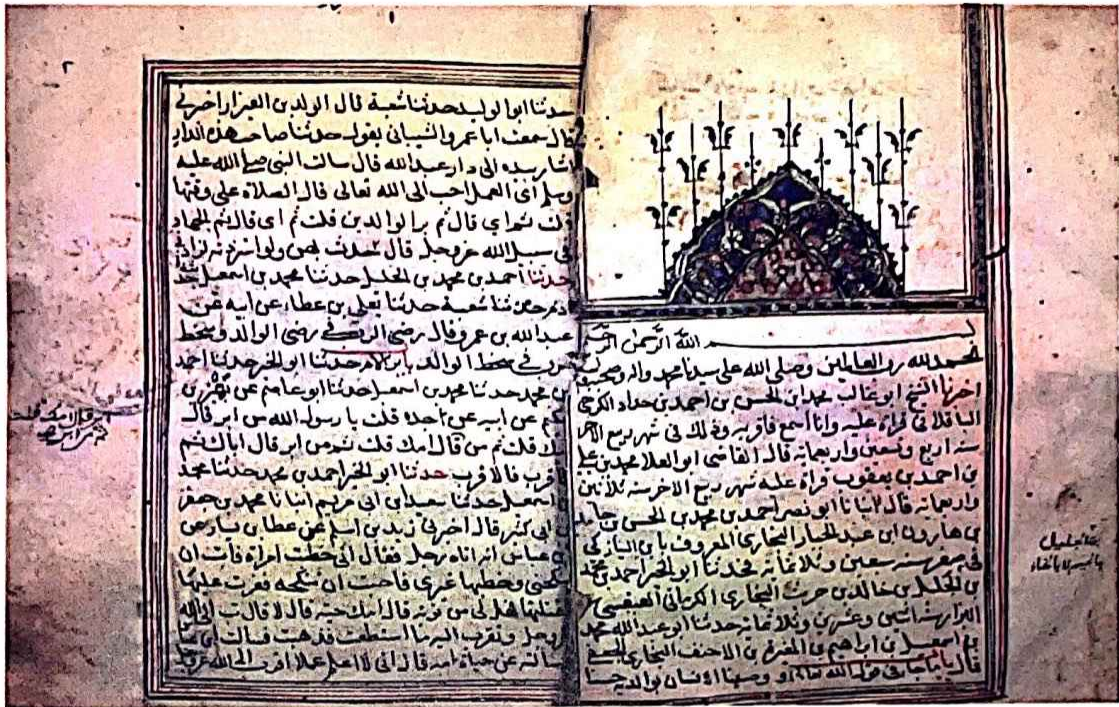 بسم الله الرحمن الرحيم
الحمد لله رب العالمين وصلى الله على سيدنا محمد واله وصحبه
اخبرنا الشيخ ابو غالب محمد بن الحسن بن احمد بن حداد الكرجي
الباقلاني قراة عليه وانا اسمع فاقر به وذلك في شهر ربيع الاخر
سنة اربع وتسعين واربعماية قال القاضي ابو العلا محمد بن علي
بن احمد بن يعقوب قراة عليه شهر ربيع الاخر سنة ثلاثين
واربعماية قال انبانا ابو نصر احمد بن محمد بن الحسن بن حامد
بن هارون ابن عبد الجبار البخاري المعروف بابن النيازكي
في صفر سنة سبعين وثلاثماية حدثنا ابو الخير احمد بن محمد
بن الجليل بن خالد بن حريث البخاري الكرماني العبقسي
البزار سنة اثنين وعشرين وثلاثماية حدثنا ابو عبد الله محمد
بن اسمعيل بن ابراهيم بن المغيرة بن الاحنف البخاري
قال باب ما جا في قول الله تعالى ووصينا الانسان بوالديه حسنا
٢
حدثنا ابو الوليد حدثنا شعبة قال الوليد بن العيزار اخبرني
قال سمعت ابا عمرو الشيباني يقول حدثنا صاحب هذه الدار
اشار بيده الى دار عبد الله قال سالت النبي صلى الله عليه
وسلم اي العمل احب الى الله تعالى قال الصلاة على وقتها
قلت ثم اي قال ثم بر الوالدين قلت ثم اي قال ثم الجهاد
في سبيل الله عز وجل قال حدثني بهن ولو استزدته لزادني
حدثنا احمد بن محمد بن الجليل حدثنا محمد بن اسمعيل حدثنا
ادم حدثنا شعبة حدثنا يعلى بن عطاء عن ابيه عن
عبد الله بن عمرو قال رضى الرب في رضى الوالد وسخط
الرب في سخط الوالد باب بر الام حدثنا ابو الخير حدثنا احمد
بن محمد حدثنا محمد بن اسمعيل حدثنا ابو عاصم عن بهز بن
حكيم عن ابيه عن جده قلت يا رسول الله من ابر قال
امك قلت ثم من قال امك قلت ثم من ابر قال اباك ثم
الاقرب فالاقرب حدثنا ابو الخير احمد بن محمد حدثنا محمد
بن اسمعيل حدثنا سعيد بن ابي مريم انبانا محمد بن جعفر
بن ابي كثير قال اخبرني زيد بن اسلم عن عطا بن يسار عن
بن عباس انه اتاه رجل فقال اني خطبت امراة فابت ان
تنكحني وخطبها غيري فاحبت ان تنكحه فغرت عليها
فقتلتها فهل لي من توبة قال امك حية قال لا قال تب الى الله
عز وجل وتقرب اليه ما استطعت فذهبت فسالت ابن عباس
سالته عن حياة امه قال اني لا اعلم عملا اقرب الى الله عز وجل